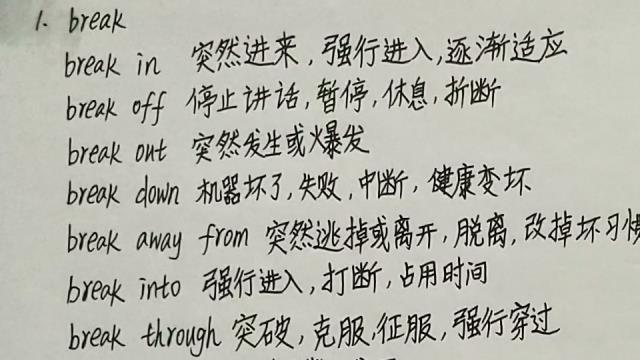 1. break
break in 突然进来,强行进入,逐渐适应
break off 停止讲话,暂停,休息,折断
break out 突然发生或爆发
break down 机器坏了,失败,中断,健康变坏
break away from 突然逃掉或离开,脱离,改掉坏习惯
break into 强行进入,打断,占用时间
break through 突破,克服,征服,强行穿过